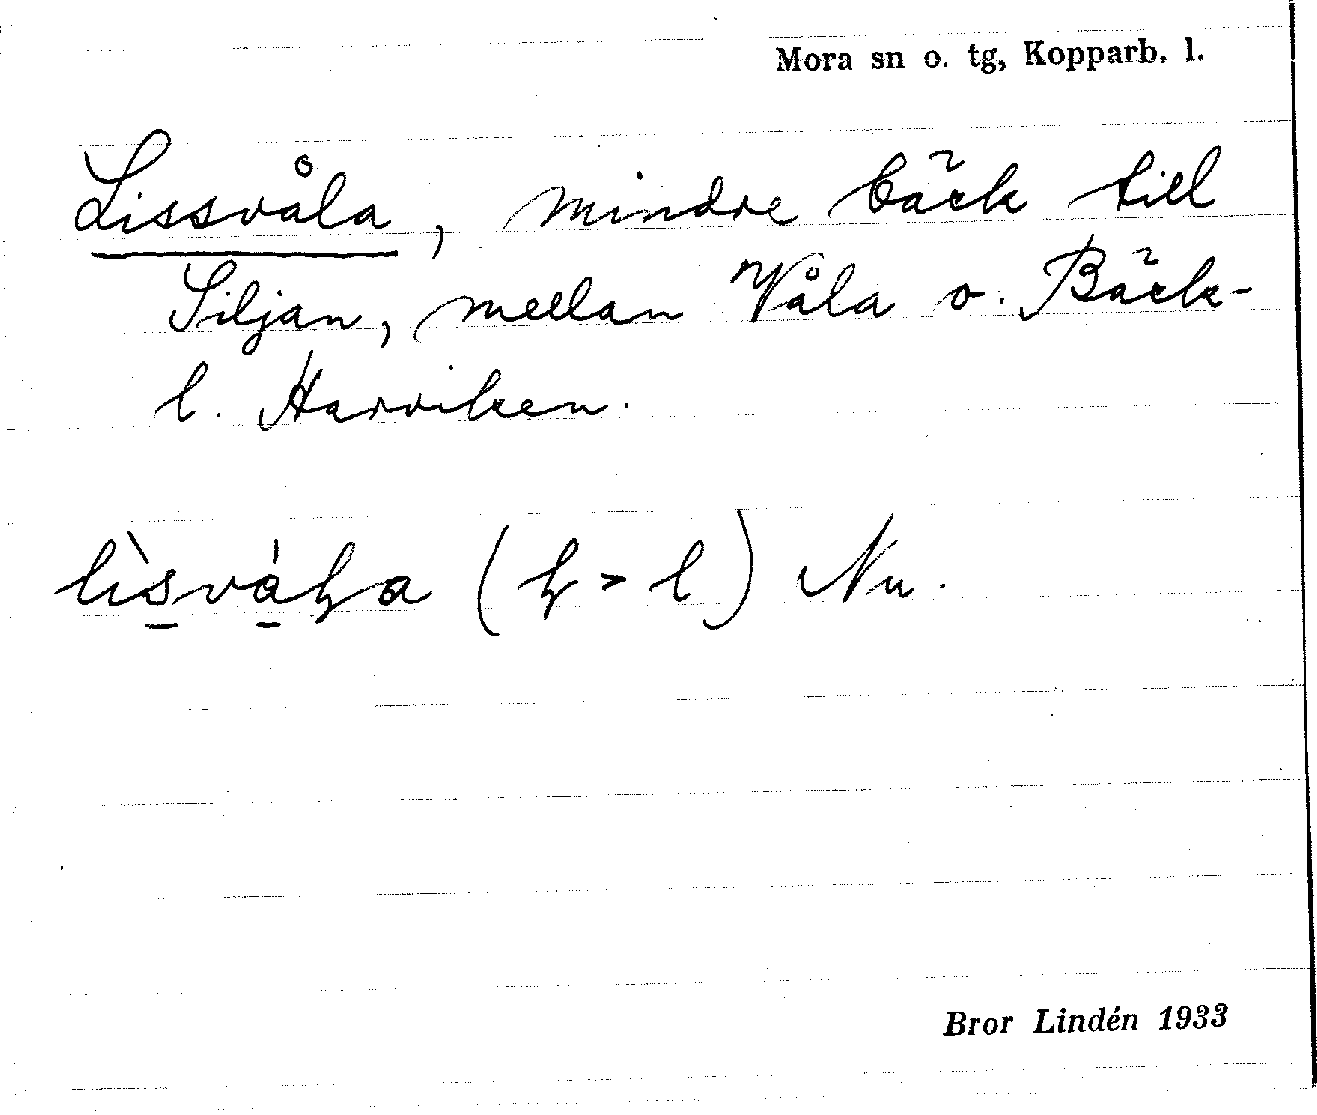 Mora sn o. tg, Kopparb. l.
Lissvåla, mindre bäck till
Siljan, mellan Våla o. Bäck-
l. Harviken.
( > l) Nu.
Bror Lindén 1933